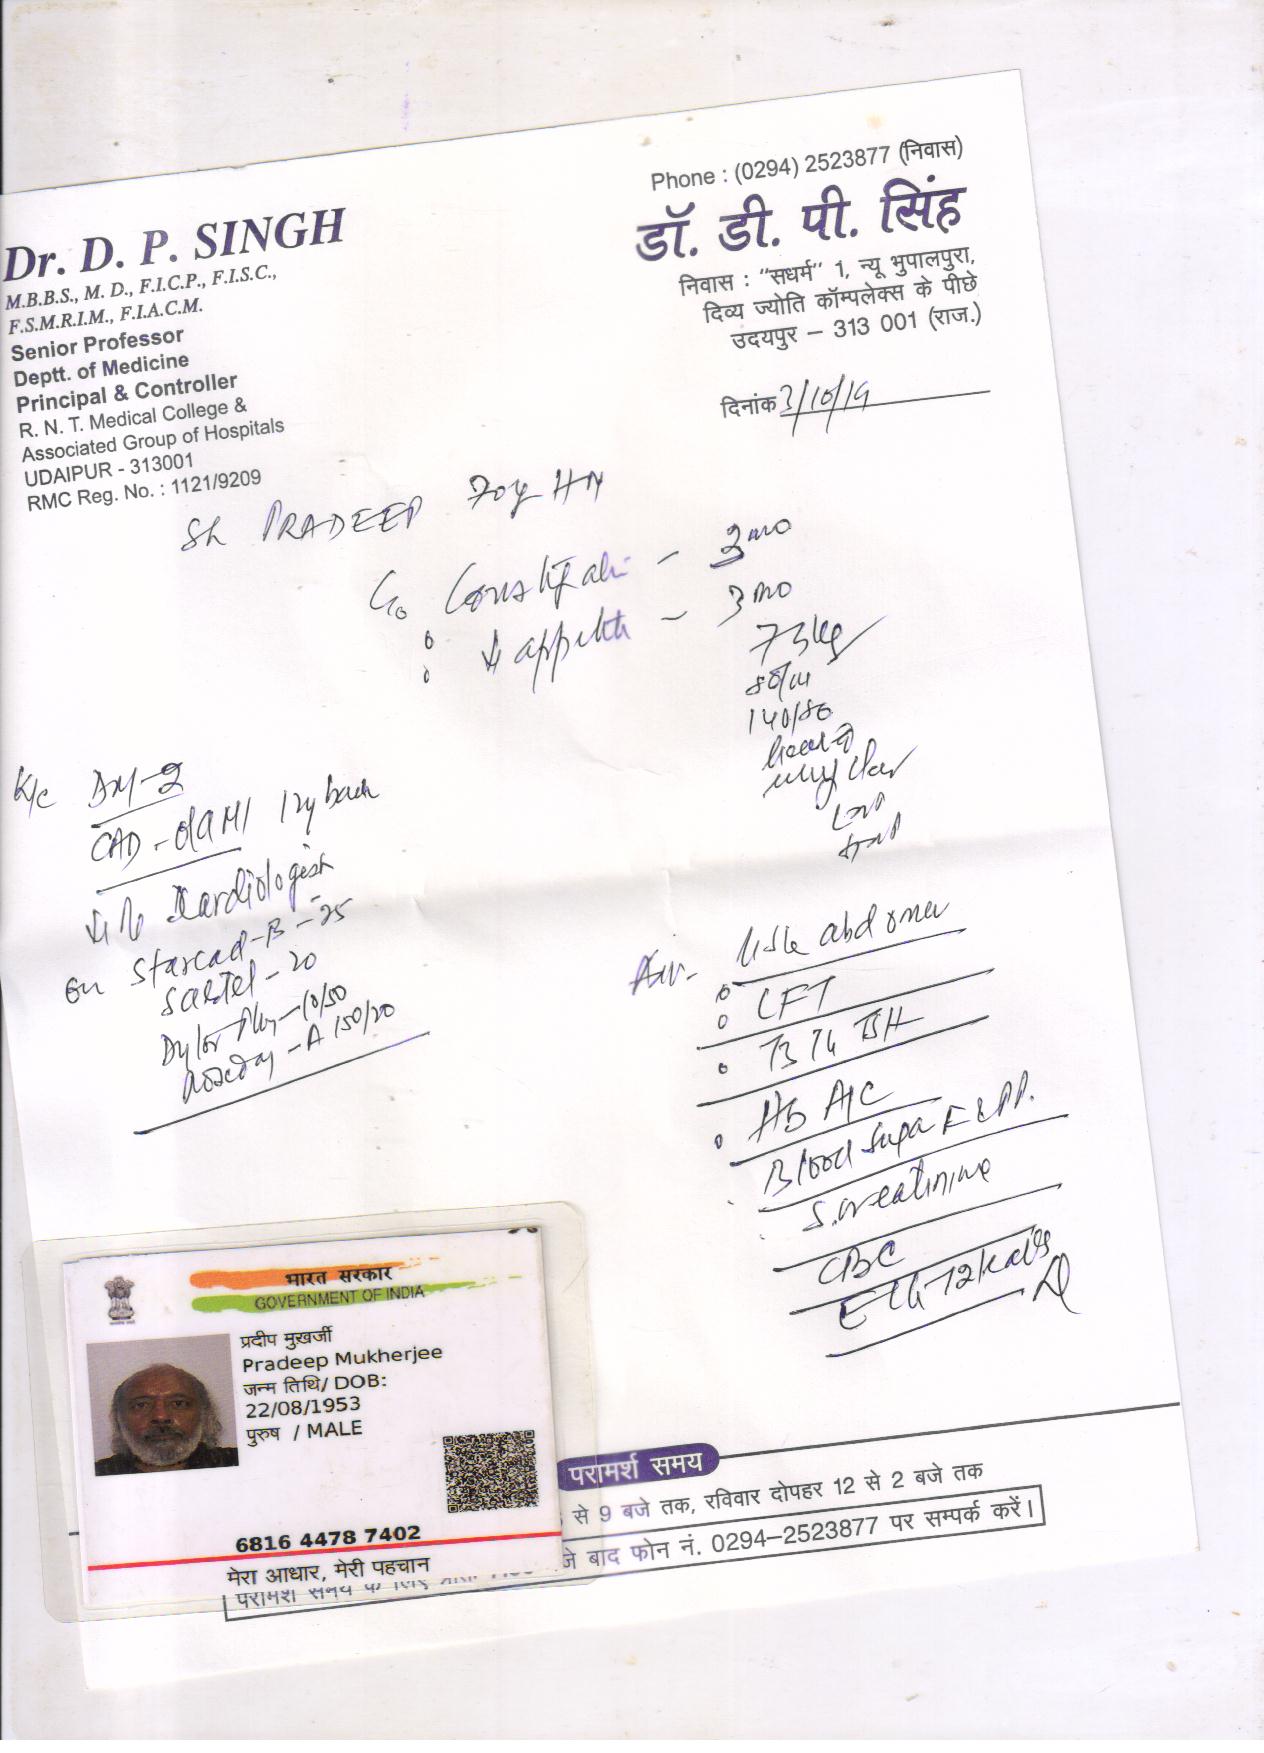 Phone : (0294) 2523877 (निवास)
Dr. D. P. SINGH
M.B.B.S., M. D., F.I.C.P., F.I.S.C.,
F.S.M.R.I.M., F.I.A.C.M.
Senior Professor
Deptt. of Medicine
Principal & Controller
R. N. T. Medical College &
Associated Group of Hospitals
UDAIPUR - 313001
RMC Reg. No. : 1121/9209
डॉ. डी. पी. सिंह
निवास : “सधर्म” 1, न्यू भुपालपुरा,
दिव्य ज्योति कॉम्पलेक्स के पीछे
उदयपुर – 313 001 (राज.)
दिनांक 3/10/19
Sh PRADEEP 70y
C/o Constipati - 3mo
↓ appetite - 3mo
73kg
80/m
140/80
K/c DM-2
CAD - 1 1y back
Cardiologist
on Starcad-B-25
Sartel-20
Dylor Plus-10/50
Roseday-A 150/20
Adv- abdomen
LFT
T3 T4 TSH
Hb A1C
Blood Sugar F & PP.
S. creatinine
CBC
ECG-12 leads
भारत सरकार
GOVERNMENT OF INDIA
प्रदीप मुखर्जी
Pradeep Mukherjee
जन्म तिथि/ DOB:
22/08/1953
पुरुष / MALE
6816 4478 7402
मेरा आधार, मेरी पहचान
परामर्श समय
से 9 बजे तक, रविवार दोपहर 12 से 2 बजे तक
बाद फोन नं. 0294–2523877 पर सम्पर्क करें।
परामर्श समय के लिए